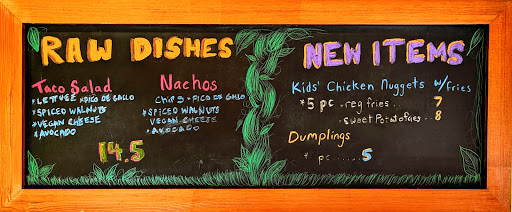 RAW DISHES
Taco Salad
* LETTUCE * PICO DE GALLO
* SPICED WALNUTS
* VEGAN CHEESE
* AVOCADO
Nachos
CHIPS * PICO DE GALLO
* SPICED WALNUTS
VEGAN CHEESE
* AVOCADO
14.5
NEW ITEMS
Kids' Chicken Nuggets w/Fries
* 5 pc - reg fries.. 7
- sweet Potato fries.. 8
Dumplings
pc ...... 5